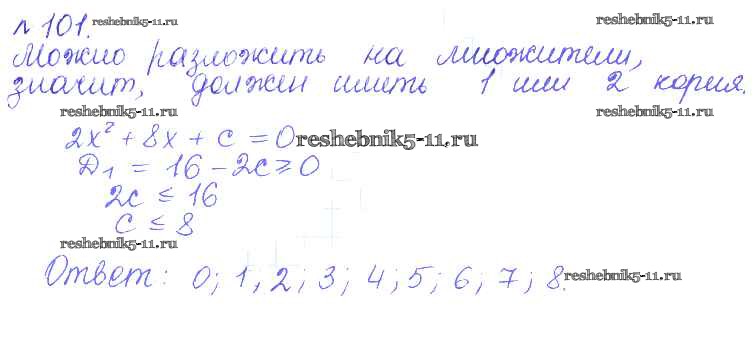 № 101. reshebnik5-11.ru reshebnik5-11.ru
Можно разложить на множители,
значит, должен иметь 1 или 2 корня.
reshebnik5-11.ru reshebnik5-11.ru
2x² + 8x + c = 0 reshebnik5-11.ru
Д₁ = 16 - 2c ≥ 0
2c ≤ 16
c ≤ 8
reshebnik5-11.ru
Ответ: 0; 1; 2; 3; 4; 5; 6; 7; 8. reshebnik5-11.ru